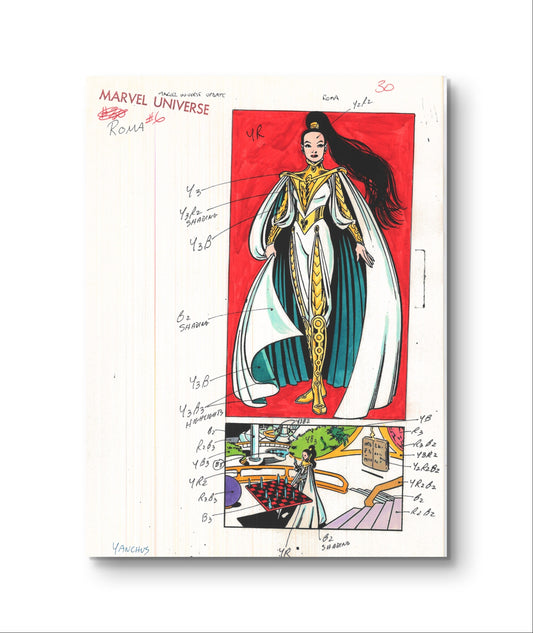 MARVEL UNIVERSE UPDATE
30
MARVEL UNIVERSE
#6
ROMA
ROMA
Y2R2
YR
Y3
Y3R2
SHADING
Y3B
B2
SHADING
Y3B
Y3B3
HIGHLIGHTS
YB
B2
R3
R2B3
R3B2
YB3
Y3R2
YR2
Y2R2B2
R3B3
YR2B2
B3
B2
R2B2
YR
B2
SHADING
YANCHUS